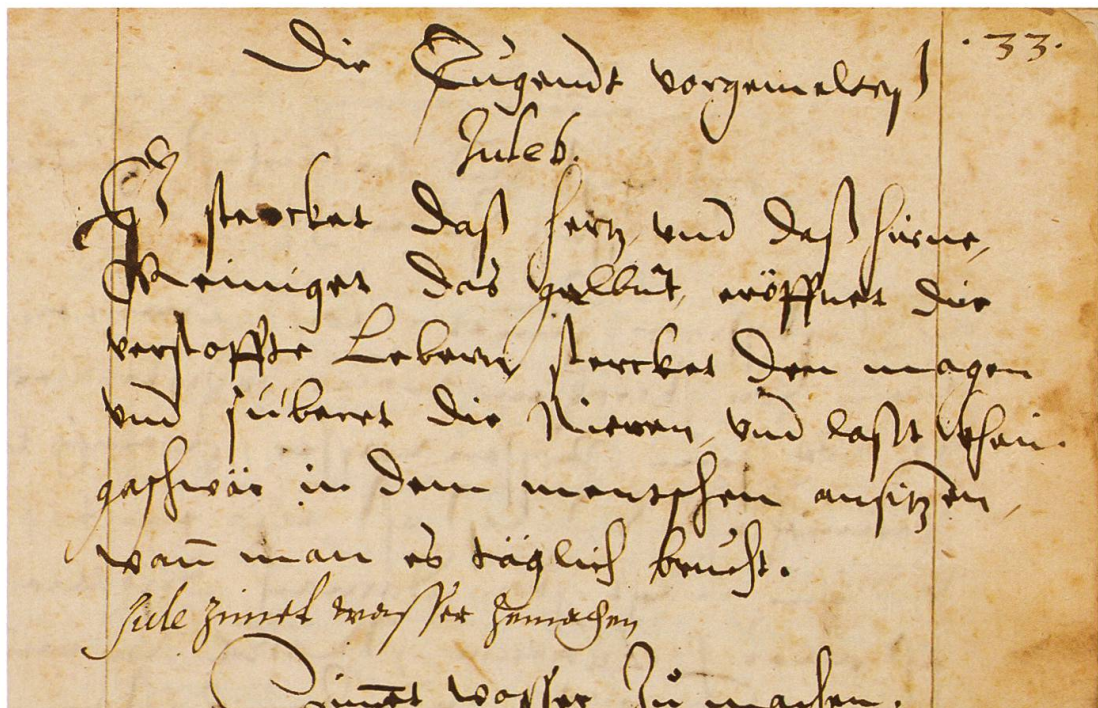 .33.
Die Tugendt vorgemeltes
Juleb.
Er stercket daß hertz, vnd daß hirne,
Reiniget das geblüt, eröffnet die
verstopffte Lebern, stercket den magen
vnd sübert die Nieren, vnd laßt khein
geschwär in dem mentschen ansitzen,
wan̄ man es täglich brucht.
zimet wasser zemachen
Zimet wasser zů machen.